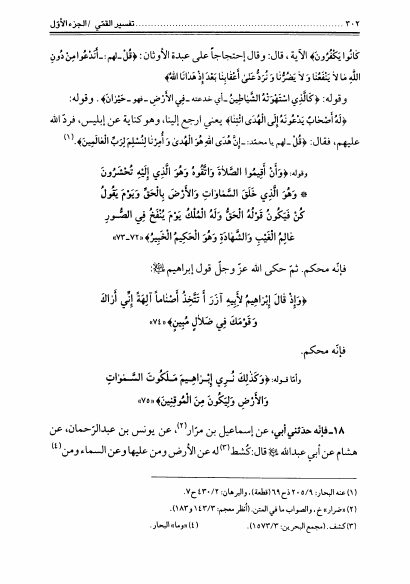 ٣٠٢ ........ تفسير القمّي /الجزء الأوّل
كَانُوا يَكْفُرُونَ﴾ الآية، قال: وقال إحتجاجاً على عبدة الأوثان: ﴿قُل -لهم:- أَنَدْعُوا مِنْ دُونِ
اللَّهِ مَا لاَ يَنْفَعُنَا وَلاَ يَضُرُّنَا وَ نُرَدُّ عَلَىٰ أَعْقَابِنَا بَعْدَ إِذْ هَدَانَا اللَّهُ﴾
وقوله: ﴿كَالَّذِي اسْتَهْوَتْهُ الشَّيَاطِينُ -أي خدعته- فِي الأَرْضِ -فهو- حَيْرَانَ﴾. وقوله:
﴿لَهُ أَصْحَابٌ يَدْعُونَهُ إِلَى الْهُدَى ائْتِنَا﴾ يعني ارجع إلينا، وهو كناية عن إبليس، فردّ الله
عليهم، فقال: ﴿قُلْ -لهم يا محمّد:- إِنَّ هُدَى اللَّهِ هُوَ الْهُدَىٰ وَ أُمِرْنَا لِنُسْلِمَ لِرَبِّ الْعَالَمِينَ﴾. (١)
وقوله: ﴿وَأَنْ أَقِيمُوا الصَّلاَةَ وَاتَّقُوهُ وَهُوَ الَّذِي إِلَيْهِ تُحْشَرُونَ
* وَهُوَ الَّذِي خَلَقَ السَّمَاوَاتِ وَالأَرْضَ بِالْحَقِّ وَيَوْمَ يَقُولُ
كُنْ فَيَكُونُ قَوْلُهُ الْحَقُّ وَلَهُ الْمُلْكُ يَوْمَ يُنْفَخُ فِي الصُّورِ
عَالِمُ الْغَيْبِ وَالشَّهَادَةِ وَهُوَ الْحَكِيمُ الْخَبِيرُ﴾ «٧٢-٧٣»
فإنّه محكم. ثمّ حكى الله عزّ وجلّ قول إبراهيم ﷺ:
﴿وَإِذْ قَالَ إِبْرَاهِيمُ لِأَبِيهِ آزَرَ أَ تَتَّخِذُ أَصْنَاماً آلِهَةً إِنِّي أَرَاكَ
وَقَوْمَكَ فِي ضَلاَلٍ مُبِينٍ﴾ «٧٤»
فإنّه محكم.
وأمّا قوله: ﴿وَكَذَلِكَ نُرِي إِبْرَاهِيمَ مَلَكُوتَ السَّمَوَاتِ
وَالأَرْضِ وَلِيَكُونَ مِنَ الْمُوقِنِينَ﴾ «٧٥»
١٨ـ فإنّه حدّثني أبي، عن إسماعيل بن مرّار(٢)، عن يونس بن عبدالرّحمان، عن
هشام عن أبي عبدالله ﷺ قال: كُشط (٣) له عن الأرض ومن عليها وعن السماء ومن (٤)
(١) عنه البحار: ٢٠٥/٩ ذح٦٩ (قطعة)، والبرهان: ٤٣٠/٢ ح٧.
(٢) «ضرار» خ، والصواب ما في المتن. (أنظر معجم: ١٤٣/٣ و١٨٣).
(٣) كشف. (مجمع البحرين: ١٥٧٣/٣). (٤) «وما» البحار.